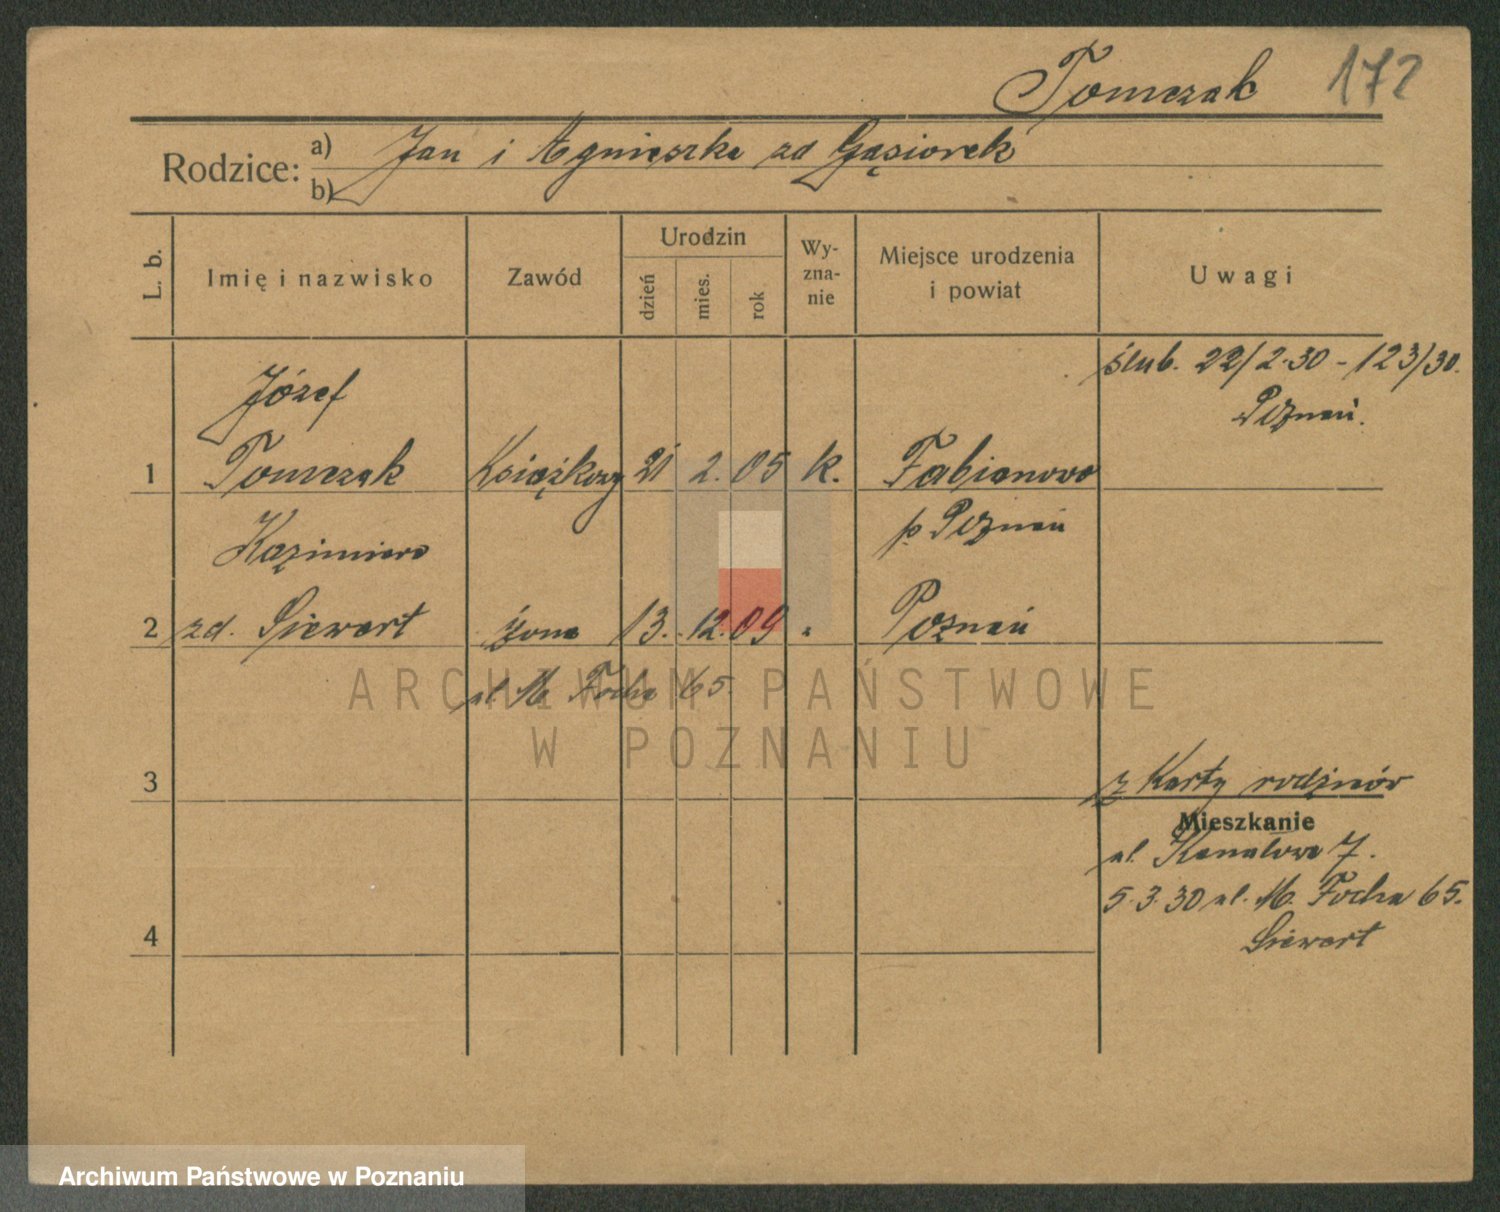 Tomczak 172
Rodzice: a) Jan i Agnieszka zd Gąsiorek
b)
L. b. Imię i nazwisko Zawód Urodzin dzień mies. rok Wyznanie Miejsce urodzenia i powiat Uwagi
ślub. 22/2.30 - 123/30.
Józef
Poznań.
1 Tomczak Książkowy 21 2. 05 k. Fabianowo
p. Poznań
Kazimiera
2 zd. Siewert żona 13. 12. 09 " Poznań
ul. M. Focha 65.
ARCHIWUM PAŃSTWOWE
W POZNANIU
3
z Karty rodziców
Mieszkanie
ul. Kanałowa 7.
5.3.30 ul. M. Focha 65.
4
Siewert
Archiwum Państwowe w Poznaniu